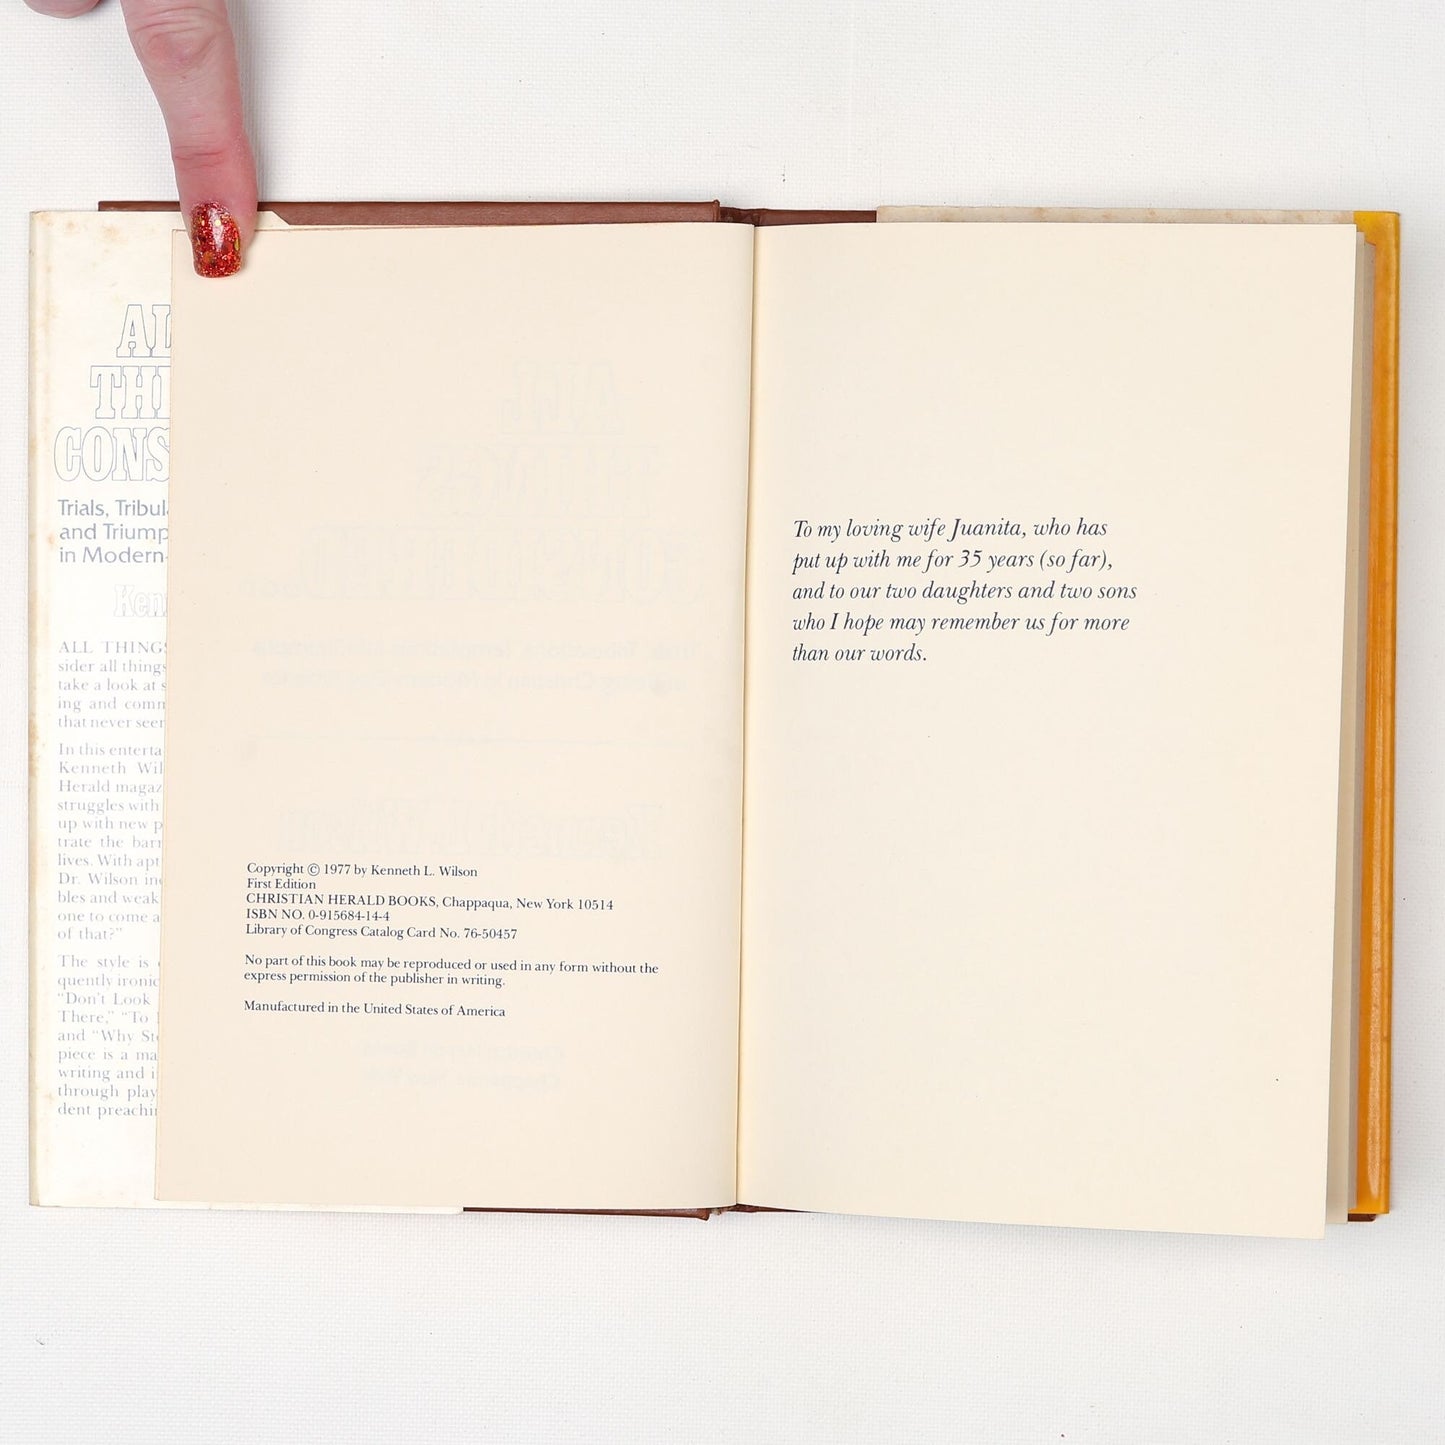 AL
THI
CONS
Trials, Tribul
and Triump
in Modern-
Ken
ALL THINGS
sider all things
take a look at s
ing and comm
that never seer
In this enterta
Kenneth Wil
Herald magaz
struggles with
up with new p
trate the barr
lives. With apt
Dr. Wilson in
bles and weak
one to come a
of that?"
The style is
quently ironic
"Don't Look
There," "To
and "Why St
piece is a ma
writing and i
through play
dent preachi
Copyright © 1977 by Kenneth L. Wilson
First Edition
CHRISTIAN HERALD BOOKS, Chappaqua, New York 10514
ISBN NO. 0-915684-14-4
Library of Congress Catalog Card No. 76-50457
No part of this book may be reproduced or used in any form without the
express permission of the publisher in writing.
Manufactured in the United States of America
To my loving wife Juanita, who has
put up with me for 35 years (so far),
and to our two daughters and two sons
who I hope may remember us for more
than our words.